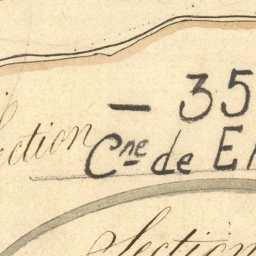 Section
— 35
Cne de E
Section